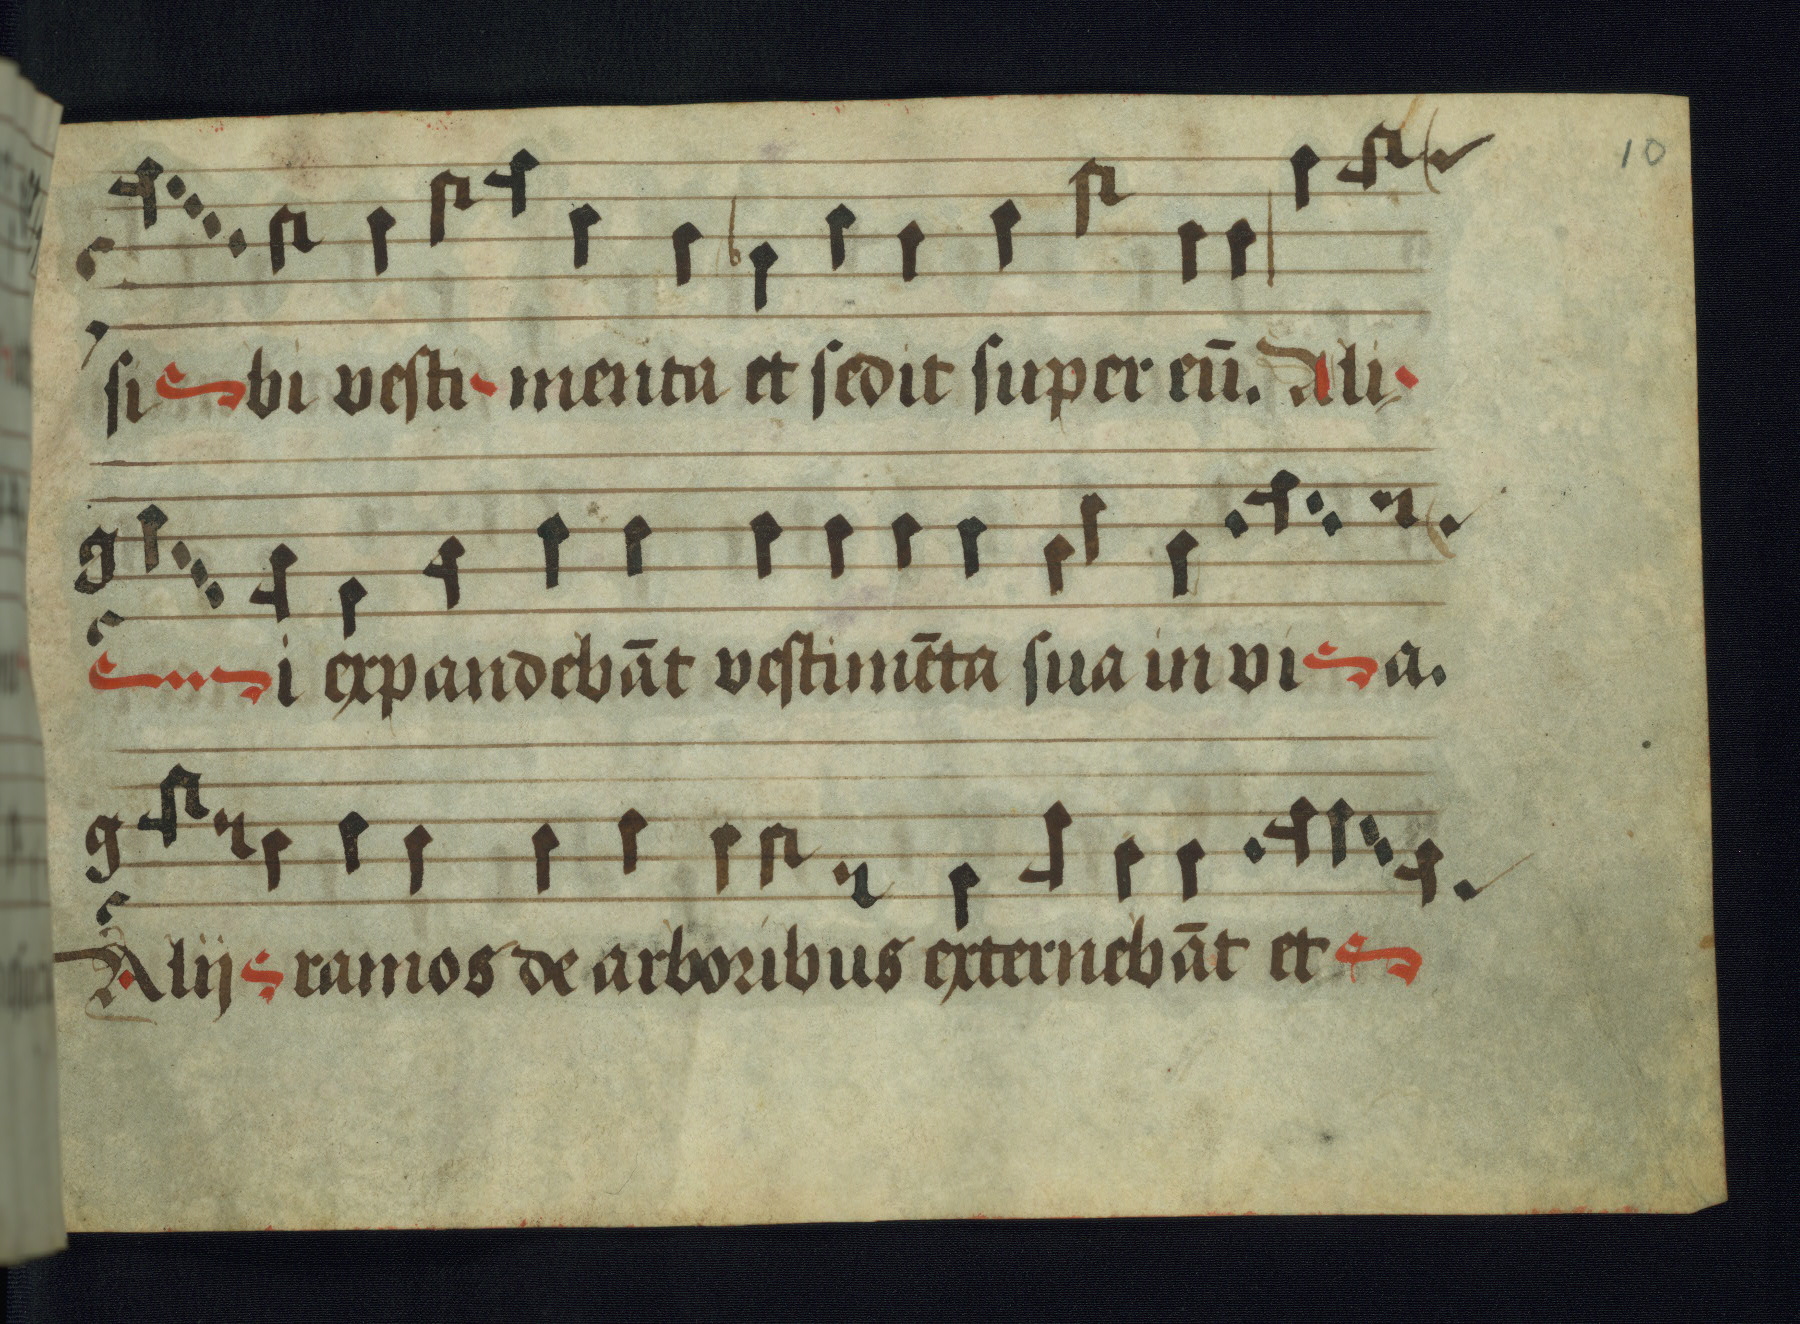 10
sibi vestimenta et sedit super eū. Ali
i expandebāt vestimēta sua in via.
Alij ramos de arboribus externebāt et